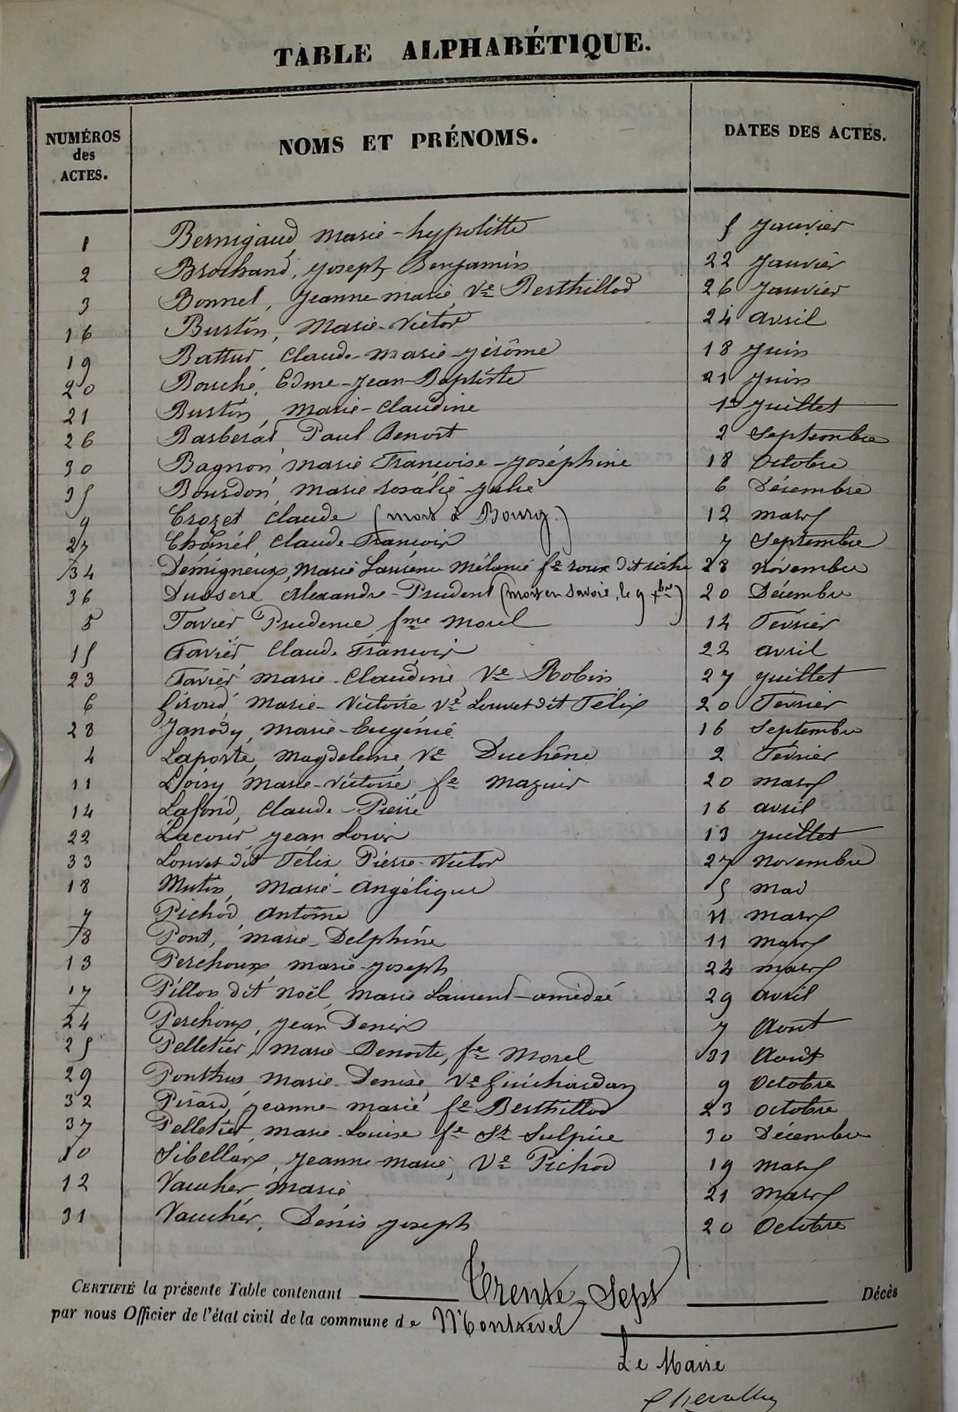 TABLE ALPHABÉTIQUE.
NUMÉROS des ACTES. NOMS ET PRÉNOMS. DATES DES ACTES.
1 Bernigaud Marie-hypolitte 5 Janvier
2 Brochand, Joseph Benjamin 22 Janvier
3 Bonnet, Jeanne marie, Ve Berthillod 26 Janvier
16 Bustin, Marie-Victor 24 avril
19 Battur, Claude-marie-Jérôme 18 Juin
20 Bouché, Edme-Jean-Baptiste 21 Juin
21 Bustin, Marie-Claudine 1er Juillet
26 Barberat Paul Benoit 2 Septembre
30 Bagnon marie Françoise-Joséphine 18 Octobre
35 Bourdon, marie rosalie Julie 6 Décembre
9 Crozet Claude (mort à Bourg.) 12 mars
27 Chanel, Claude-François 7 Septembre
34 Démigneux, Marie Laurence Mélanie fe roux dit riche 28 novembre
36 Dussere Alexandre-Prudent (mort en Savoie, le 9 xbre) 20 Décembre
5 Favier Prudence fme Morel 12 Février
15 Favier, Claude François 22 avril
23 Favier marie-Claudine Ve Robin 27 Juillet
6 Giroud, Marie-Victoire Ve Louvet dit Félix 20 Février
28 Janody, marie-Eugénie 16 Septembre
4 Laporte, Magdeleine, Ve Duchêne 2 Février
11 Loisy Marie-Victoire, fe Mazuir 20 mars
14 Lafond, Claude-Pierre 16 avril
22 Lacour Jean Louis 13 Juillet
33 Louvet dit Félix Pierre-Victor 27 novembre
18 Mutin, Marie-Angélique 5 mai
7 Pichod Antoine 11 mars
8 Pont, marie-Delphine 11 mars
13 Perchoux marie-Joseph 24 mars
17 Pillon dit Noël, marie Laurent-amédée 29 avril
24 Perchoux, Jean Denis 7 Aout
25 Pelletier, marie-Benoite, fe Morel 31 Aout
29 Ponthus marie-Denise Ve Guichardan 9 Octobre
32 Pirard, Jeanne-marie fe Berthillod 23 octobre
37 Pelletier, marie-Louise fe St Sulpice 30 Décembre
10 Sibellas, Jeanne-marie, Ve Pichod 19 mars
12 Vaucher, Marie 21 mars
31 Vaucher, Dénis Joseph 20 Octobre
CERTIFIÉ la présente Table contenant Trente-Sept Décès
par nous Officier de l'état civil de la commune de Montrevel
Le Maire